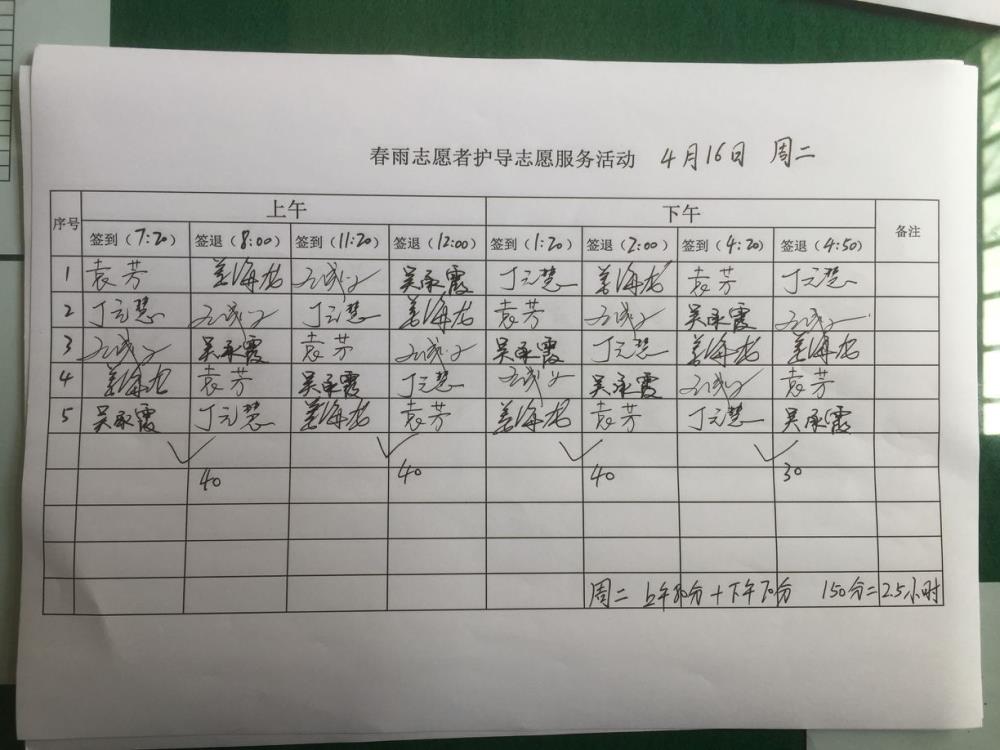 春雨志愿者护导志愿服务活动 4月16日 周二
序号 上午 下午 备注
签到（7:20） 签退（8:00） 签到（11:20） 签退（12:00） 签到（1:20） 签退（2:00） 签到（4:20） 签退（4:50）
1 袁芳 姜海龙 吴承霞 丁元慧 姜海龙 袁芳 丁元慧
2 丁元慧 丁元慧 姜海龙 袁芳 吴承霞
3 吴承霞 袁芳 吴承霞 丁元慧 姜海龙 姜海龙
4 姜海龙 袁芳 吴承霞 丁元慧 吴承霞 袁芳
5 吴承霞 丁元慧 姜海龙 袁芳 姜海龙 袁芳 丁元慧 吴承霞
40 40 40 30
周二 上午80分+下午70分 150分=2.5小时